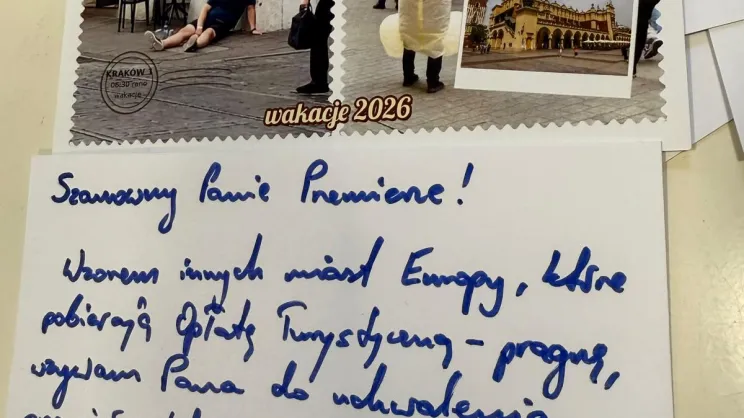 KRAKÓW 1
06:30 rano
wakacje
wakacje 2026
Szanowny Panie Premierze!
Wzorem innych miast Europy, które
pobierają Opłatę Turystyczną - pragnę,
wzywam Pana do uchwalenia